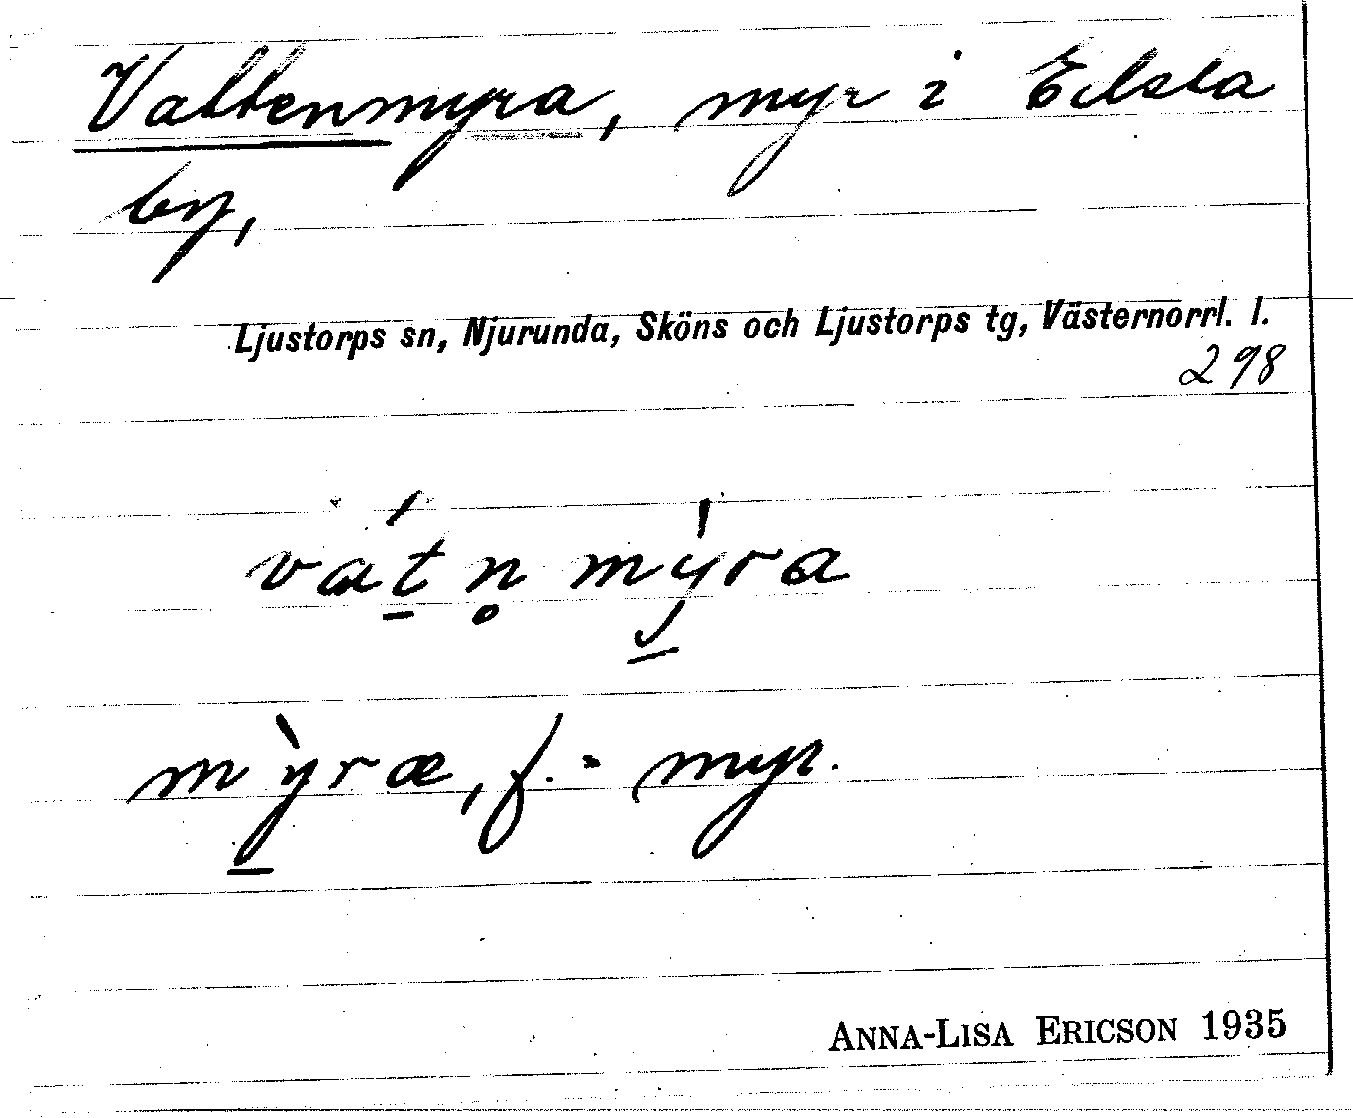 Vattenmyra, myr i Edsta
by,
Ljustorps sn, Njurunda, Sköns och Ljustorps tg, Västernorrl. l.
298
vát̠n̥mỳ̠ra
mỳ̠ræ, f. = myr.
ANNA-LISA ERICSON 1935